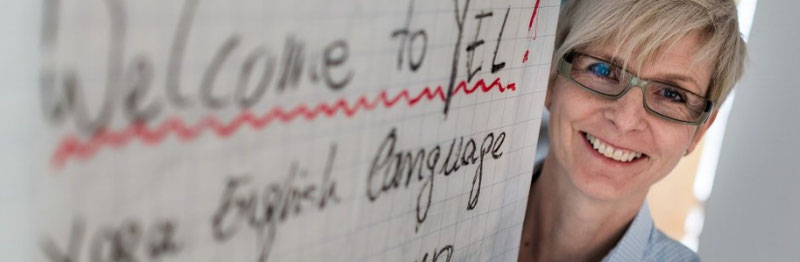 Welcome to YEL!
English Language